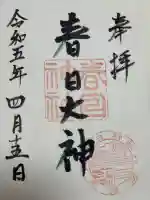 奉拝
春日大神
令和五年四月吉日